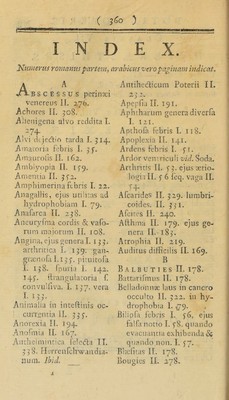 ( 360 )
INDEX.
Numerus romanus partem, arabicus vero paginam indicat.
A
ABSCESSUS perinæi
venereus II. 276.
Achores II. 308.
Alienigena ulvo reddita I.
274.
Alvi dejectio tarda I. 314.
Amatoria febris I. 35.
Amaurosis II. 162.
Ambiyopia II. 159.
Amentia II. 352.
Amphimerina febris I. 22.
Anagallis, ejus utilitas ad
hydrophobiam I. 79.
Anasarca II. 238.
Aneurysma cordis & vaso-
rum majorum II. 108.
Angina, ejus genera I. 133.
arthritica I. 139. gan-
grænosa I. 135. pituitosa
I. 138. spuria I. 142.
145. strangulatoria &
convulsiva. I. 137. vera
I. 133.
Animalia in intestinis oc-
currentia II. 335.
Anorexia II. 194.
Anosmia II. 167.
Anthelmintica selecta II.
338. Herrenschwandia-
num. Ibid.
Antihecticum Poterii II.
232.
Apepsia II. 191.
Aphtharum genera diversa
I. 121.
Apthosa febris I. 118.
Apoplexia II. 141.
Ardens febris I. 51.
Ardor ventriculi vid. Soda.
Arthritis II. 52. ejus ætio-
logia II. 56 seq. vaga II.
54.
Ascarides II. 329. lumbri-
coides. II. 331.
Ascites II. 240.
Asthma II. 179. ejus ge-
nera II. 183.
Atrophia II. 219.
Auditus difficilis II. 169.
B
BALBUTIES II. 178.
Battarismus II. 178.
Belladonnæ usus in cancro
occulto II. 322. in hy-
drophobia I. 79.
Biliosa febris I. 56. ejus
falsa notio I. 58. quando
evacuantia exhibenda &
quando non. I. 57.
Blæsitas II. 178.
Bougius II. 278.